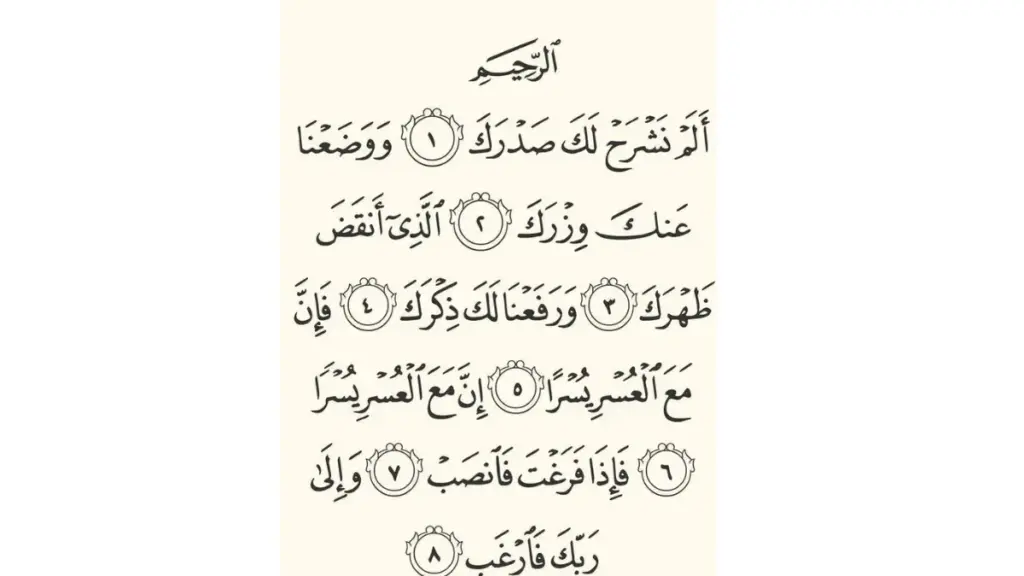 ٱلرَّحِيمِ
أَلَمْ نَشْرَحْ لَكَ صَدْرَكَ ١ وَوَضَعْنَا
عَنكَ وِزْرَكَ ٢ ٱلَّذِىٓ أَنقَضَ
ظَهْرَكَ ٣ وَرَفَعْنَا لَكَ ذِكْرَكَ ٤ فَإِنَّ
مَعَ ٱلْعُسْرِ يُسْرًا ٥ إِنَّ مَعَ ٱلْعُسْرِ يُسْرًا
٦ فَإِذَا فَرَغْتَ فَٱنصَبْ ٧ وَإِلَىٰ
رَبِّكَ فَٱرْغَب ٨